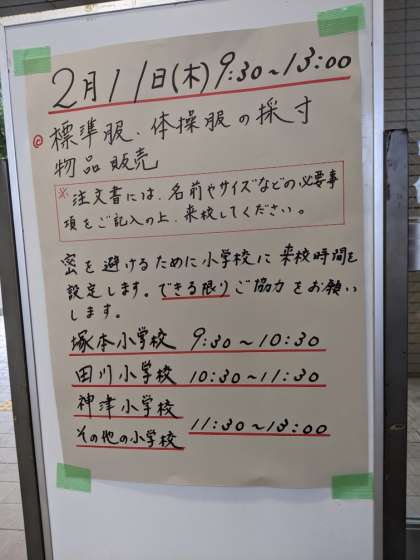 2月11日(木)9:30～13:00
◎標準服、体操服の採寸
物品販売
※注文書には、名前やサイズなどの必要事
項をご記入の上、来校してください。
密を避けるために小学校に来校時間を
設定します。できる限りご協力をお願い
します。
塚本小学校 9:30～10:30
田川小学校 10:30～11:30
神津小学校
その他の小学校 11:30～13:00